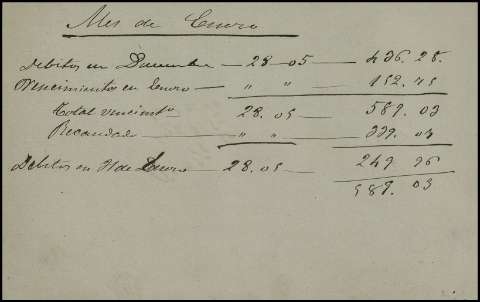 Mes de Enero
Debitos en Diciembre — 28 - 05 — 436. 28.
Vencimientos en Enero — " " — 152. 75
Total vencimto 28. 05 — 589. 03
Recaudado — " " — 339. 07
Debitos en 31 de Enero — 28. 05 — 249. 96
589. 03